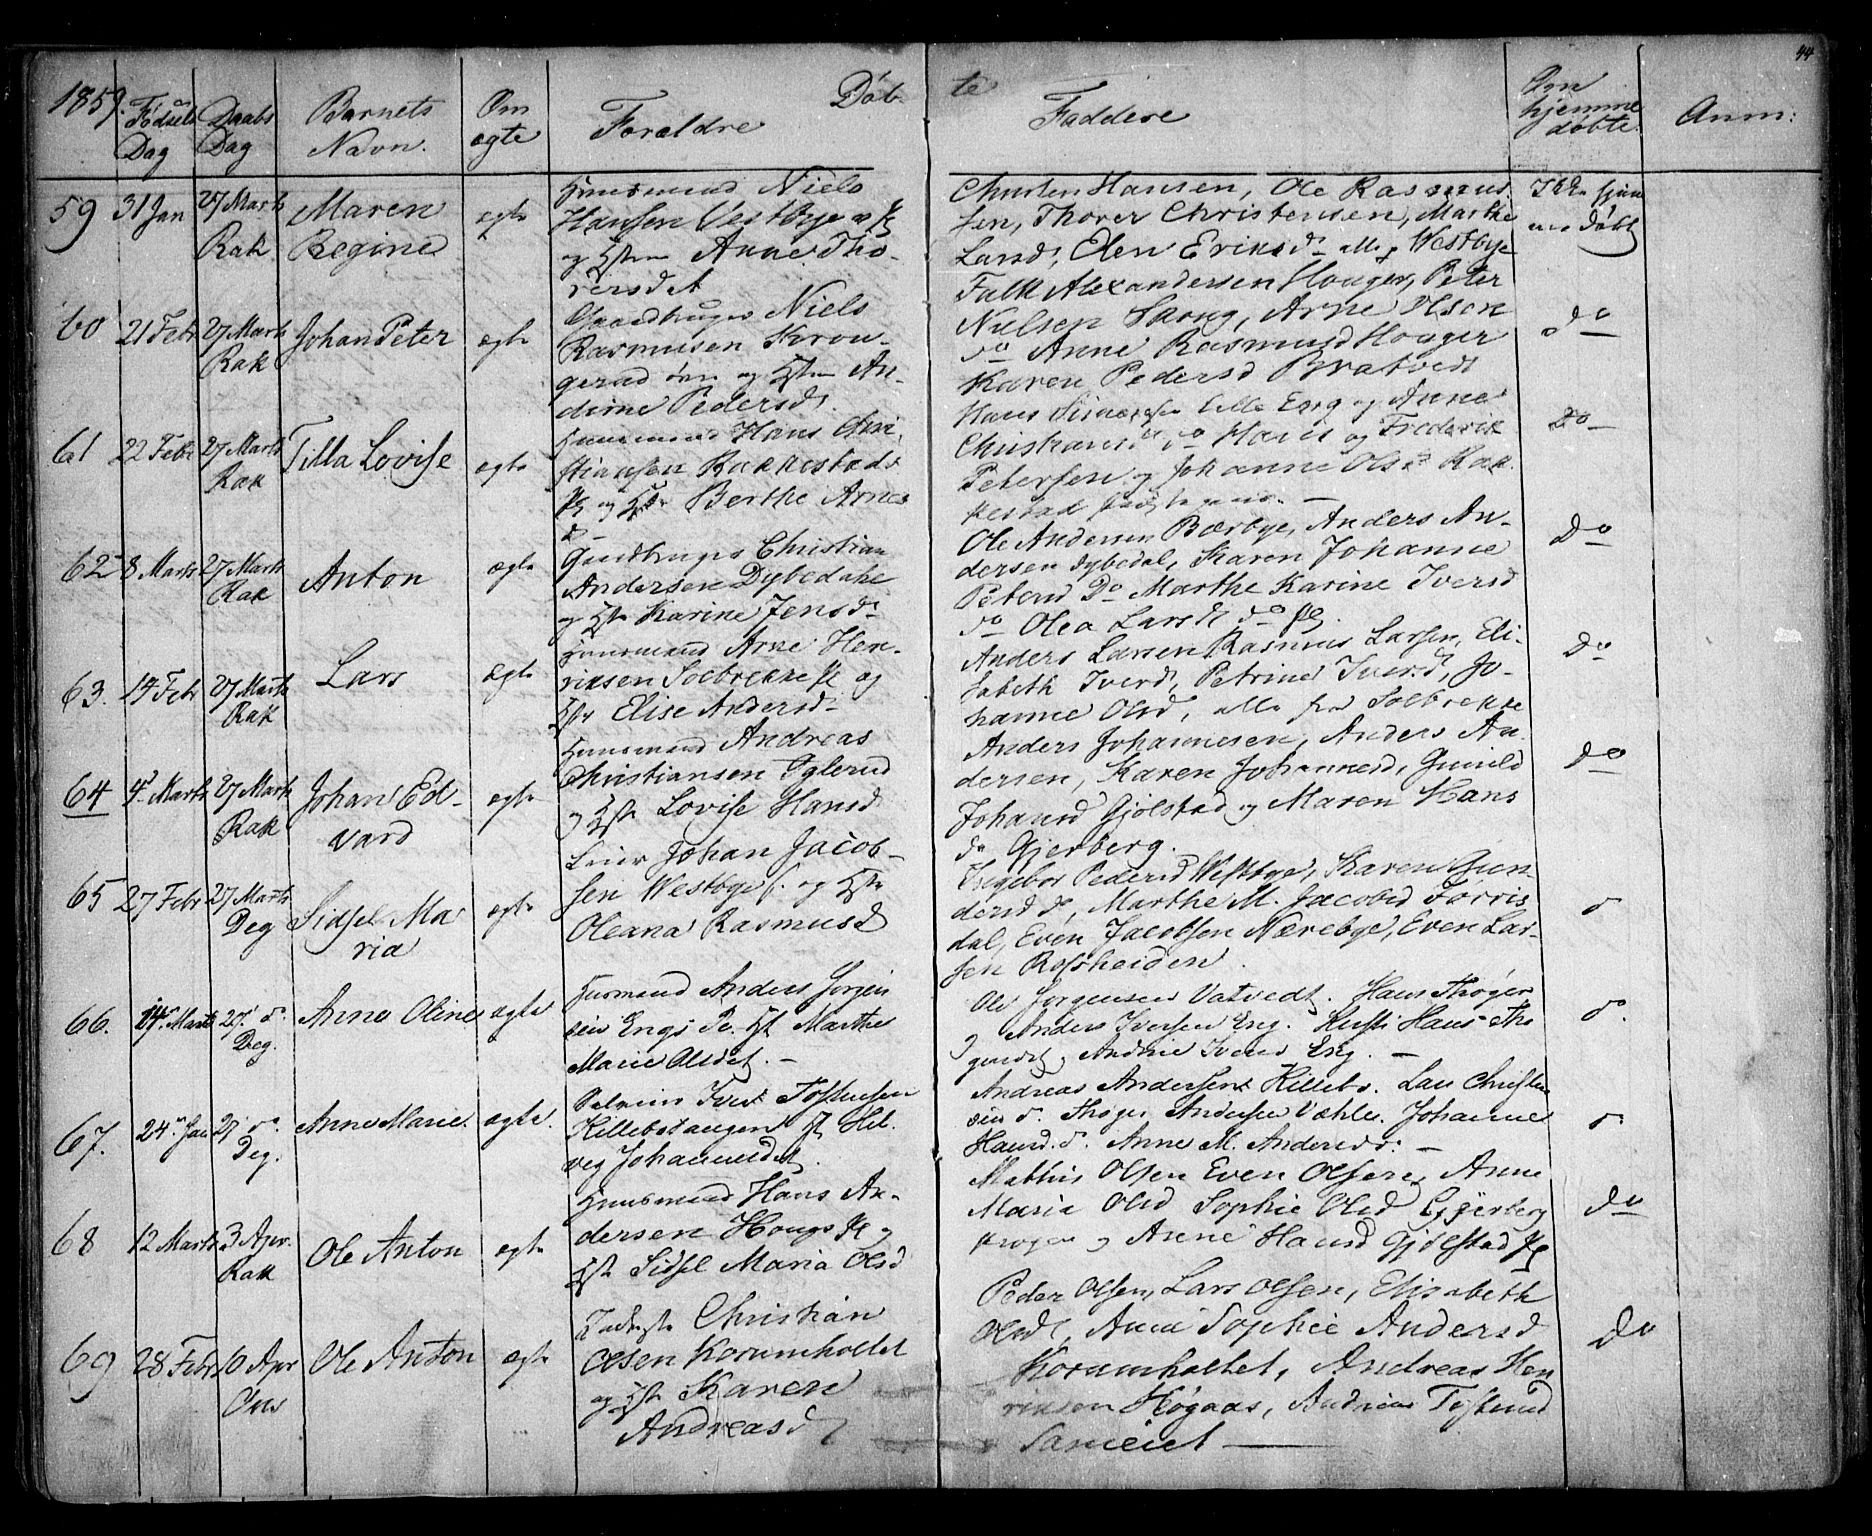 44
1859. Fødsels Dag Daabs Dag Barnets Navn. Om ægte Forældre Døbte Faddere Om hjemme døbte Anm:
59 31 Jan 27 Marts Rak Maren Regine ægte
Huusmand Niels
Hansen Vestbye
og Hstr Anne Tho-
rersdat
Christen Hansen, Ole Rasmus-
sen, Thorer Christensen, Marthe
Larsd, Elen Eriksd alle Westbye
Ikke hjem
me døbt
60 21 Febr 27 Marts Rak Johan Peter ægte
Gaardbruger Niels
Rasmusen
og Hstr An-
drine Pedersd
Falk Alexandersen Houger, Peter
Nielsen Arne Olsen
do Anne Rasmusd Houger
Karen Pedersd Bratvedt
do
61 22 Febr 27 Marts Rak Tilla Lovise ægte
Huusmand Hans Chri-
stiansen Rakkestad
og Hstr Berthe Arnes
d
Hans Lille Eng og Anne
Christians do Hans og Frederik
Petersen og Johanne Olsd Rak
kestad
Do
62 8 Marts 27 Marts Rak Anton ægte
Gaardbruger Christian
Andersen Dybedahl
og Hstr Karine Jensd
Ole Andersen Bærbye, Anders An-
dersen Dybedal, Karen Johanne
Petersd Do Marthe Karine Iversd
do Olea Larsd do
Do
63. 14 Febr 27 Marts Rak Lars ægte
Huusmand Arne Hen-
riksen Solbrekke og
Hstr Elise Andersd
Anders Larsen Rasmus Larsen, Eli-
sabeth Iversd, Petrine Iversd, Jo-
hanne Olsd, alle fra Solbrekke
Do
64 4 Marts 27 Marts Rak Johan Ed-
vard ægte
Huusmand Andreas
Christiansen Oglerud
og Hstr Lovise Hansd
Anders Johannesen, Anders An
dersen, Karen Johannesd, Gunild
Johansd Gjølstad og Maren Hans
d Gjerberg.
do
65 27 Febr 27 Marts Deg Sidsel Ma
ria ægte
Leier Johan Jacob-
sen Westbye og Hstr
Oleana Rasmusd
Ingebor Pedersd Westbye, Karen Gun
dersd do, Marthe M. Jacobsd Torris
dal, Even Jacobsen Nærebye, Even Lar-
sen Rosheiden.
do
66. 14 Marts 27. do Deg. Anne Oline ægte
Husmand Anders Jørgen
sen Engs Hst Marthe
Marie Olsdat. –
Ole Jørgensen Vatvedt. Hans Thøger
og Anders Iversen Eng. Kirsti Hans
og Andrine Iversd Eng. –
do.
67. 24. Jan 27 do Deg. Anne Marie. ægte.
Iver Tostensen
Killebstangen Hst Hel-
veg Johannesdat.
Andreas Andersen Killebs. Lars Christen
sen do. Thøger Andersen Væhler. Johanne
Hansd. do. Anne M. Andersd do. –
do
68 12 Marts 3 Apr. Rak Ole Anton ægte
Huusmand Hans An-
dersen Hougs og
Hstr Sidsel Maria Olsd
Mathis Olsen Even Olsen, Anne
Maria Olsd Sophie Olsd Gjerberg
krogen og Anne Hansd Gjølstad
Do
69 28 Febr 10 Apr Ous Ole Anton ægte
Christian
Olsen Kornmholtet
og Hstr Karen
Andreasd
Peder Olsen, Lars Olsen, Elisabeth
Olsd, Anne Sophie Andersd
Kornmholtet, Andreas Hen
riksen Høgaas, Andrine
Sameiet
Do